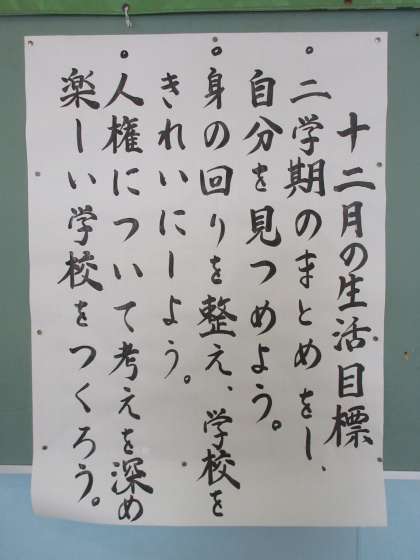 十二月の生活目標
。二学期のまとめをし、
自分を見つめよう。
。身の回りを整え、学校を
きれいにしよう。
。人権について考えを深め
楽しい学校をつくろう。